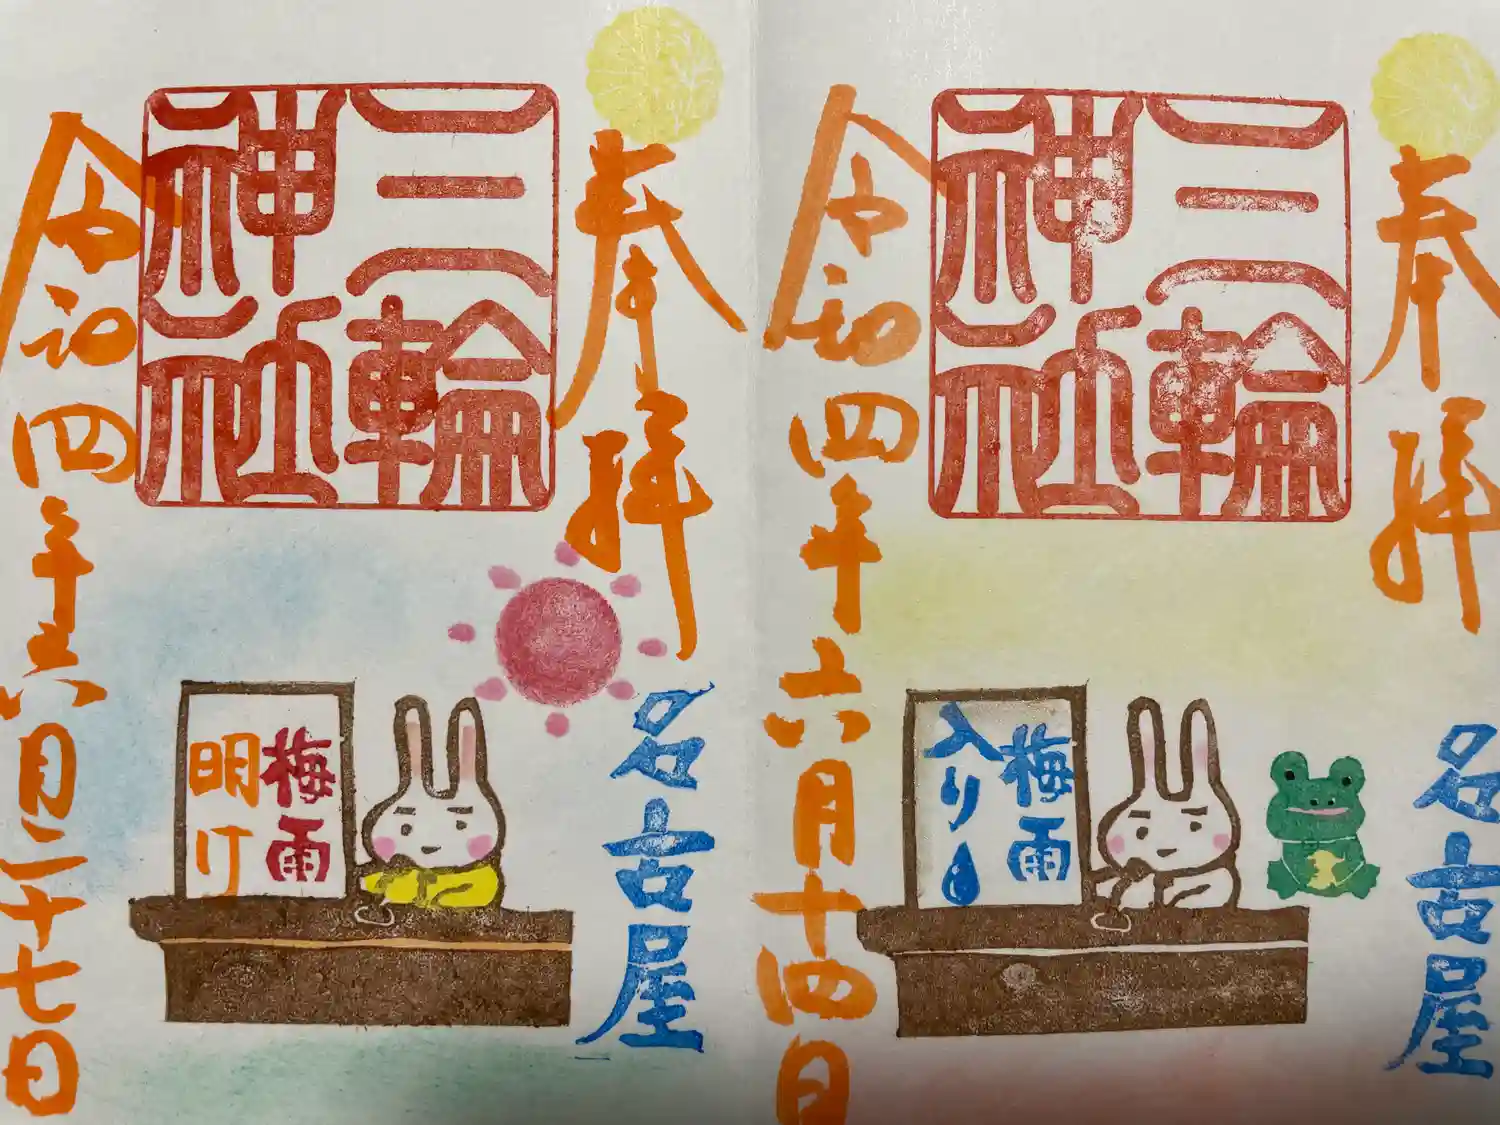 奉拝
三輪
神社
名古屋
梅雨
入り
令和四年六月十四日
奉拝
三輪
神社
名古屋
梅雨
明け
令和四年六月二十七日